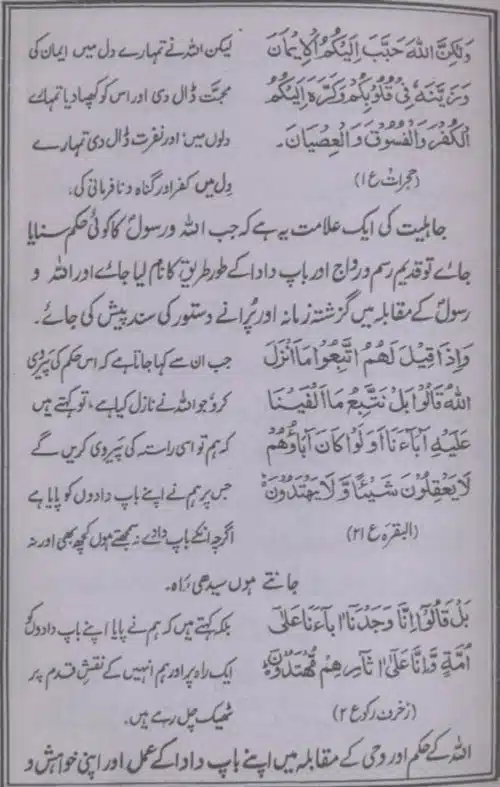 وَلٰكِنَّ اللّٰهَ حَبَّبَ اِلَيْكُمُ الْاِيْمَانَ لیکن اللہ نے تمہارے دل میں ایمان کی
وَزَيَّنَهٗ فِيْ قُلُوْبِكُمْ وَكَرَّهَ اِلَيْكُمُ محبت ڈال دی اور اس کو کھبا دیا تمہارے
الْكُفْرَ وَالْفُسُوْقَ وَالْعِصْيَانَ۔ دلوں میں؛ اور نفرت ڈال دی تمہارے
(حجرات ع ۱) دِل میں کفر اور گناہ و نافرمانی کی،
جاہلیت کی ایک علامت یہ ہے کہ جب اللہ ورسولؐ کا کوئی حکم سنایا
جائے تو قدیم رسم و رواج اور باپ دادا کے طور طریق کا نام لیا جائے اور اللہ و
رسولؐ کے مقابلہ میں گزشتہ زمانہ اور پُرانے دستور کی سند پیش کی جائے۔
وَاِذَا قِيْلَ لَهُمُ اتَّبِعُوْا مَا اَنْزَلَ جب ان سے کہا جاتا ہے کہ اس حکم کی پیروی
اللّٰهُ قَالُوْا بَلْ نَتَّبِعُ مَا اَلْفَيْنَا کرو جو اللہ نے نازل کیا ہے، تو کہتے ہیں
عَلَيْهِ اٰبَآءَنَا اَوَلَوْ كَانَ اٰبَاؤُهُمْ کہ ہم تو اسی راستہ کی پیروی کریں گے
لَا يَعْقِلُوْنَ شَيْئًا وَّلَا يَهْتَدُوْنَ جس پر ہم نے اپنے باپ دادوں کو پایا ہے
(البقرہ ع ۲۱) اگرچہ انکے باپ دادے نہ سمجھتے ہوں کچھ بھی اور نہ
جانتے ہوں سیدھی راہ۔
بَلْ قَالُوْا اِنَّا وَجَدْنَا اٰبَاءَنَا عَلٰى بلکہ کہتے ہیں کہ ہم نے پایا اپنے باپ دادوں کو
اُمَّةٍ وَّاِنَّا عَلٰى اٰثَارِهِمْ مُّهْتَدُوْنَ ایک راہ پر اور ہم انہیں کے نقش قدم پر
(زخرف رکوع ۲) ٹھیک چل رہے ہیں۔
اللہ کے حکم اور وحی کے مقابلہ میں اپنے باپ دادا کے عمل اور اپنی خواہش و